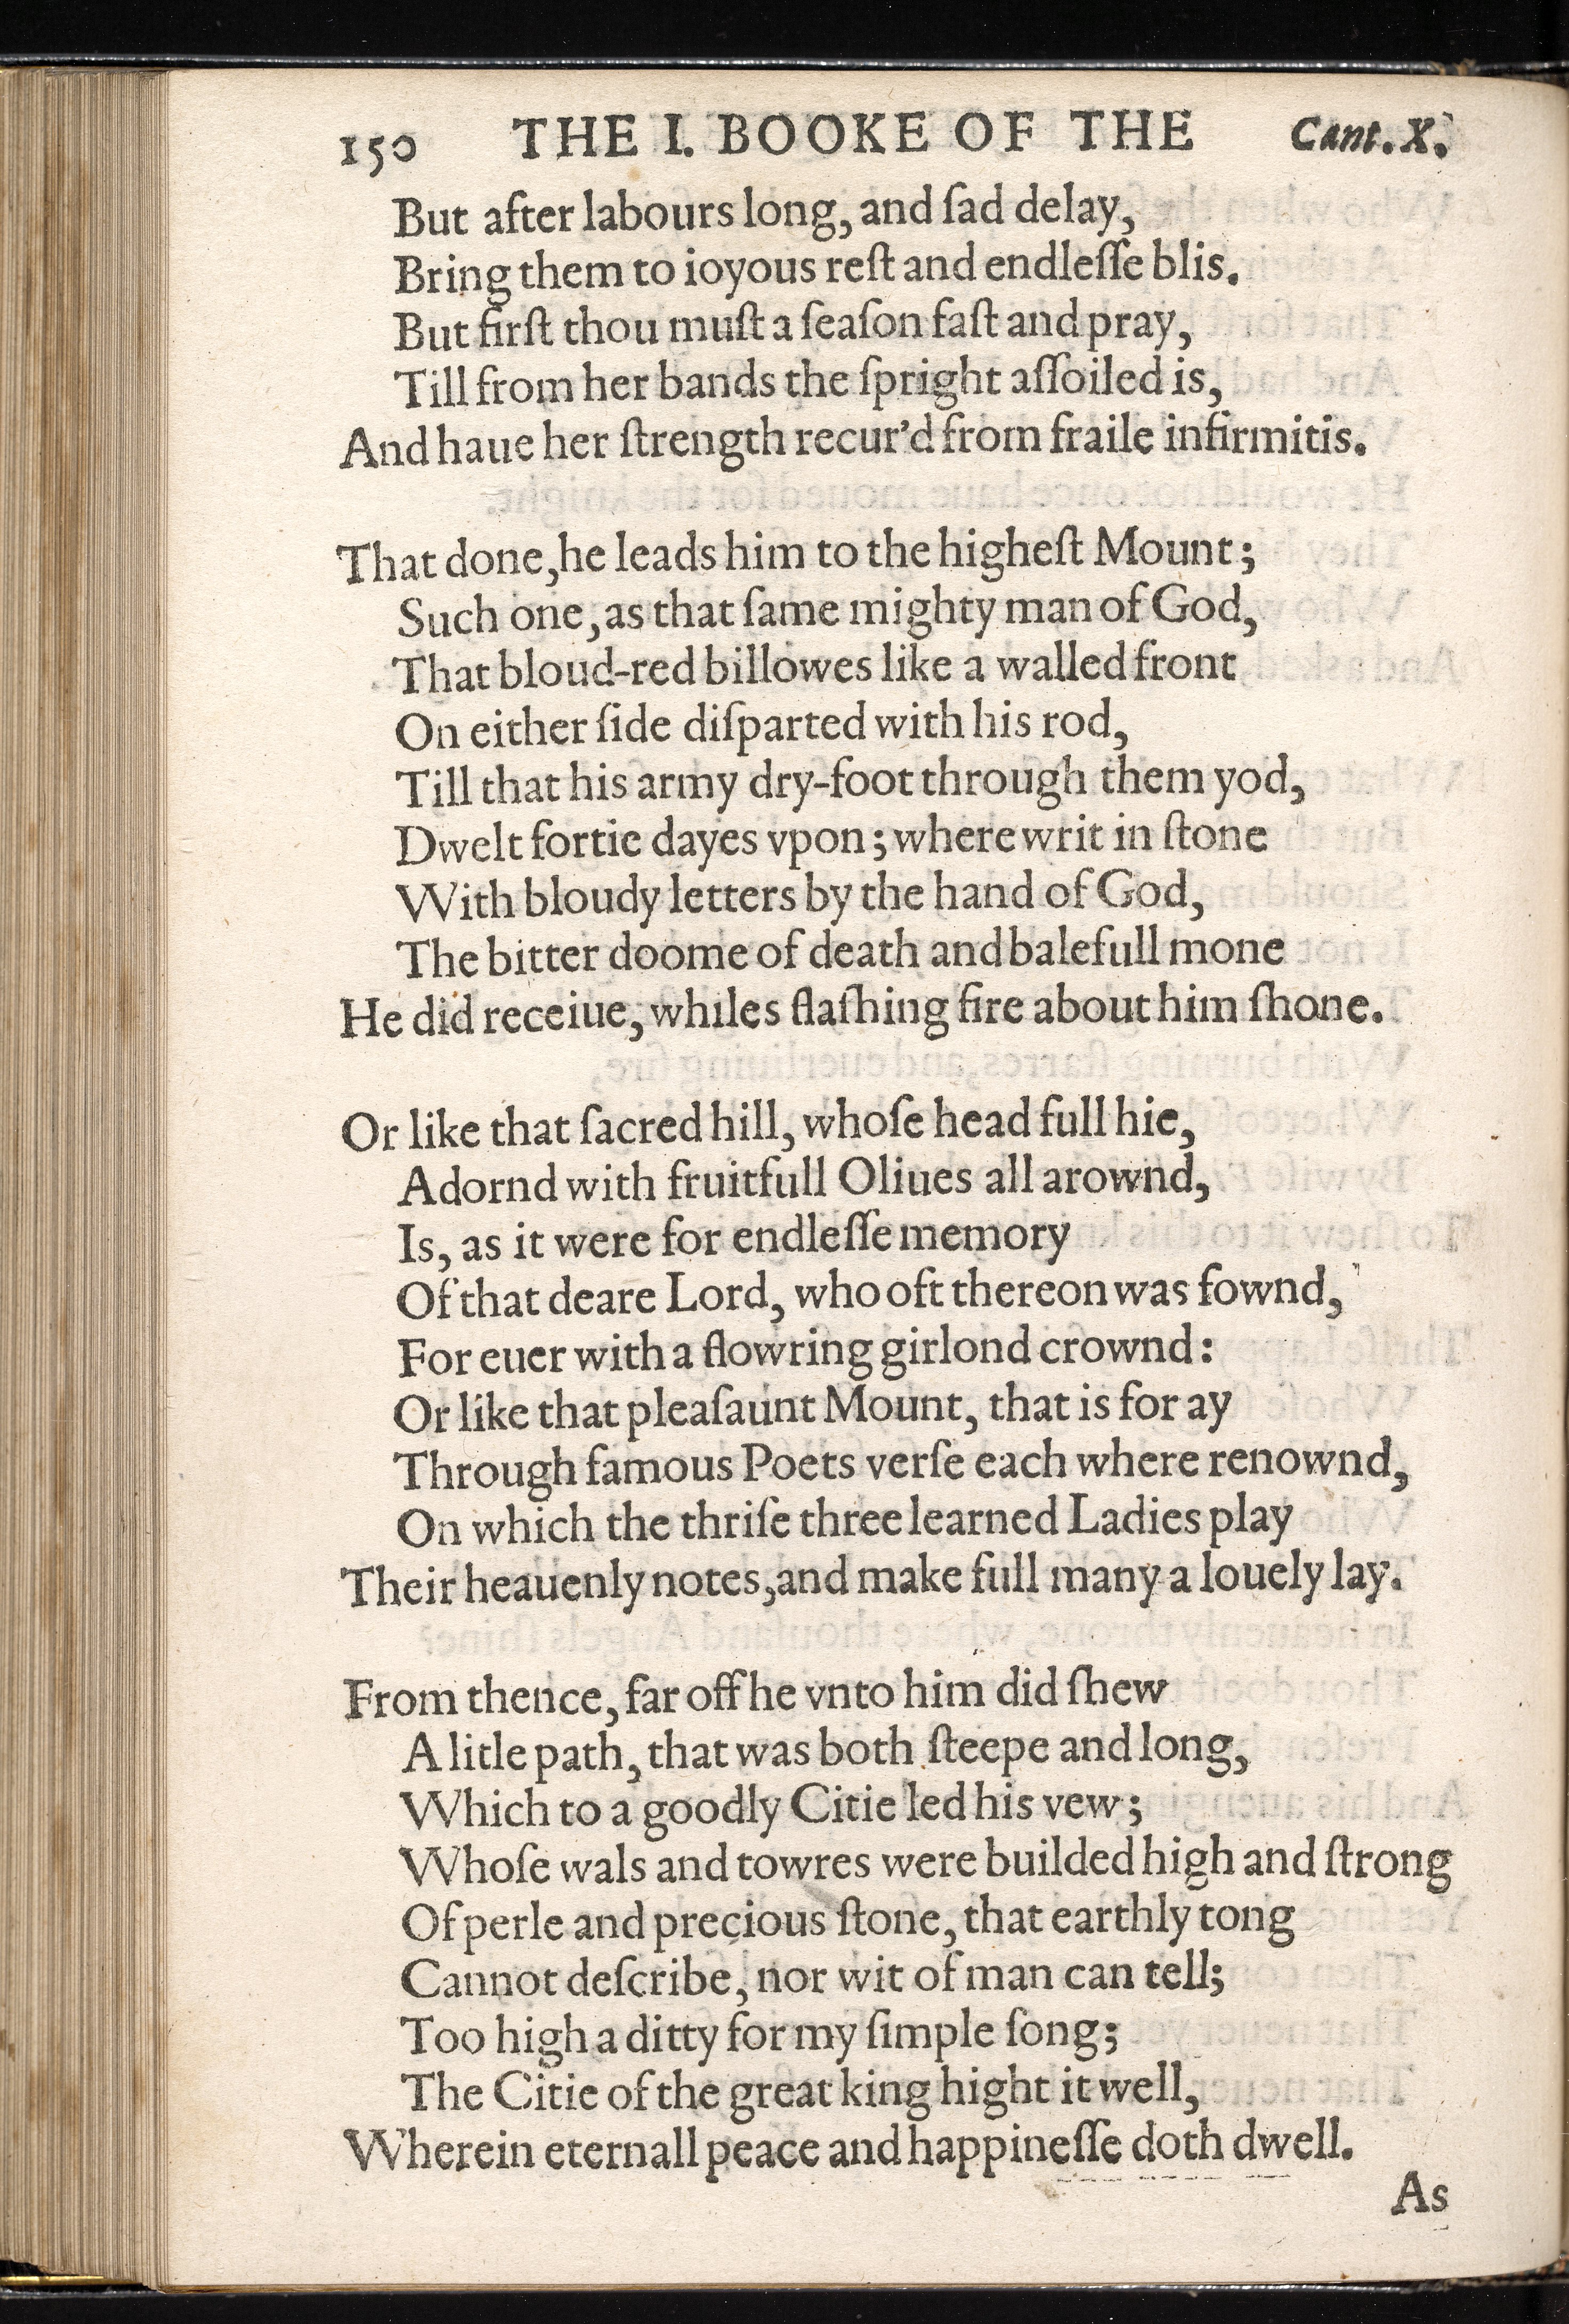 150 THE I. BOOKE OF THE Cant. X.
But after labours long, and ſad delay,
Bring them to ioyous reſt and endleſſe blis.
But firſt thou muſt a ſeaſon faſt and pray,
Till from her bands the ſpright aſſoiled is,
And haue her ſtrength recur'd from fraile infirmitis.
That done, he leads him to the higheſt Mount;
Such one, as that ſame mighty man of God,
That bloud-red billowes like a walled front
On either ſide diſparted with his rod,
Till that his army dry-foot through them yod,
Dwelt fortie dayes vpon; where writ in ſtone
With bloudy letters by the hand of God,
The bitter doome of death and balefull mone
He did receiue, whiles flaſhing fire about him ſhone.
Or like that ſacred hill, whoſe head full hie,
Adornd with fruitfull Oliues all arownd,
Is, as it were for endleſſe memory
Of that deare Lord, who oft thereon was fownd,
For euer with a flowring girlond crownd:
Or like that pleaſaunt Mount, that is for ay
Through famous Poets verſe each where renownd,
On which the thriſe three learned Ladies play
Their heauenly notes, and make full many a louely lay.
From thence, far off he vnto him did ſhew
A litle path, that was both ſteepe and long,
Which to a goodly Citie led his vew;
Whoſe wals and towres were builded high and ſtrong
Of perle and precious ſtone, that earthly tong
Cannot deſcribe, nor wit of man can tell;
Too high a ditty for my ſimple ſong;
The Citie of the great king hight it well,
Wherein eternall peace and happineſſe doth dwell.
As